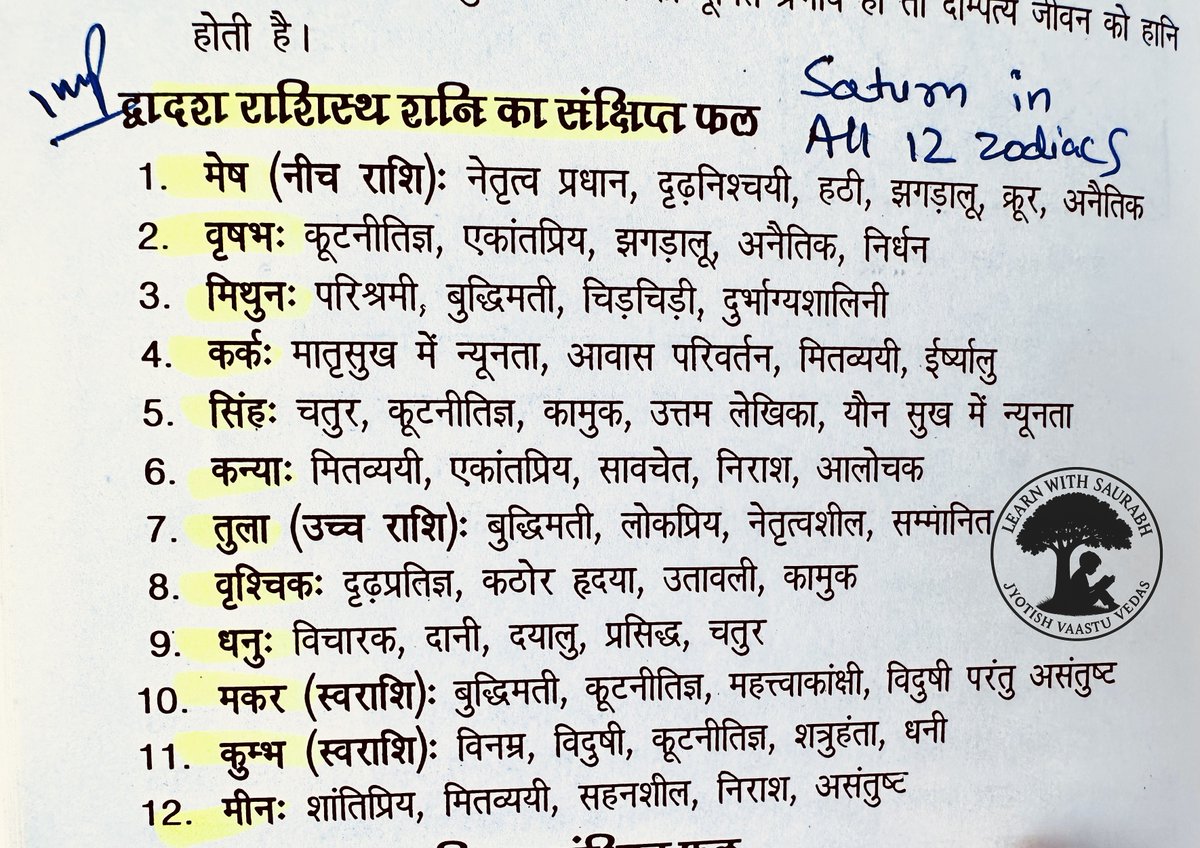 तो दाम्पत्य जीवन को हानि
होती है।
Imp
द्वादश राशिस्थ शनि का संक्षिप्त फल
Saturn in
All 12 zodiacs
1. मेष (नीच राशि): नेतृत्व प्रधान, दृढ़निश्चयी, हठी, झगड़ालू, क्रूर, अनैतिक
2. वृषभः कूटनीतिज्ञ, एकांतप्रिय, झगड़ालू, अनैतिक, निर्धन
3. मिथुनः परिश्रमी, बुद्धिमती, चिड़चिड़ी, दुर्भाग्यशालिनी
4. कर्कः मातृसुख में न्यूनता, आवास परिवर्तन, मितव्ययी, ईर्ष्यालु
5. सिंहः चतुर, कूटनीतिज्ञ, कामुक, उत्तम लेखिका, यौन सुख में न्यूनता
6. कन्याः मितव्ययी, एकांतप्रिय, सावचेत, निराश, आलोचक
7. तुला (उच्च राशि): बुद्धिमती, लोकप्रिय, नेतृत्वशील, सम्मानित
8. वृश्चिकः दृढ़प्रतिज्ञ, कठोर हृदया, उतावली, कामुक
9. धनुः विचारक, दानी, दयालु, प्रसिद्ध, चतुर
10. मकर (स्वराशि): बुद्धिमती, कूटनीतिज्ञ, महत्त्वाकांक्षी, विदुषी परंतु असंतुष्ट
11. कुम्भ (स्वराशि): विनम्र, विदुषी, कूटनीतिज्ञ, शत्रुहंता, धनी
12. मीनः शांतिप्रिय, मितव्ययी, सहनशील, निराश, असंतुष्ट
LEARN WITH SAURABH
JYOTISH VAASTU VEDAS